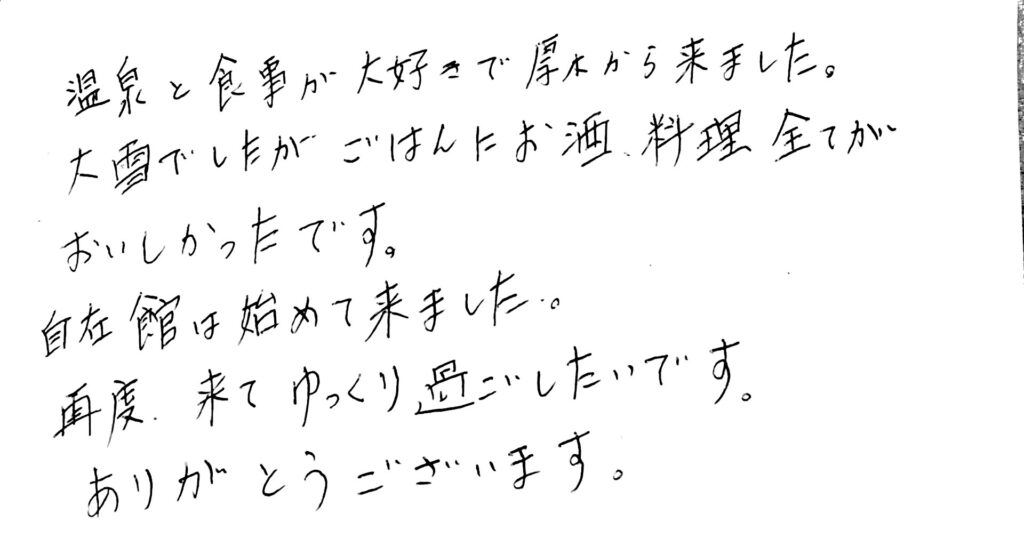 温泉と食事が大好きで厚木から来ました。
大雪でしたがごはんにお酒、料理全てが
おいしかったです。
自在館は始めて来ました。
再度、来てゆっくり過ごしたいです。
ありがとうございます。